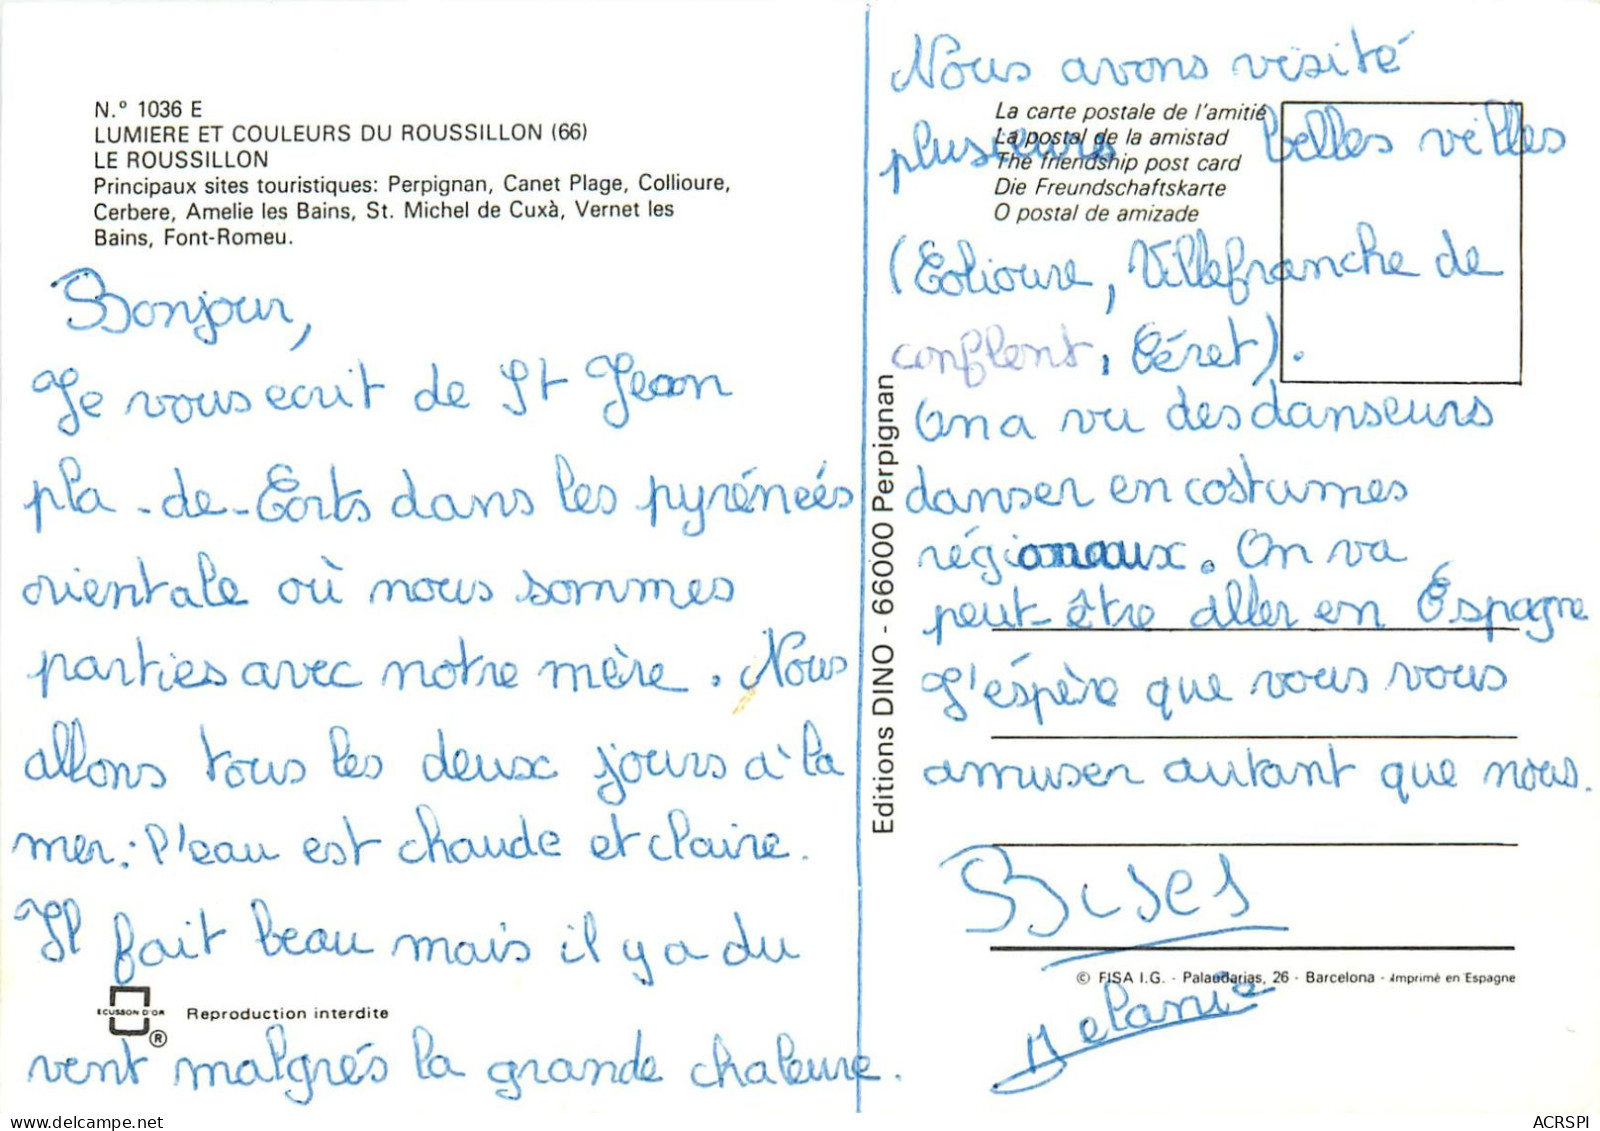 N.º 1036 E
LUMIERE ET COULEURS DU ROUSSILLON (66)
LE ROUSSILLON
Principaux sites touristiques: Perpignan, Canet Plage, Collioure,
Cerbere, Amelie les Bains, St. Michel de Cuxà, Vernet les
Bains, Font-Romeu.
Bonjour,
Je vous ecrit de St Jean
pla-de-Corts dans les pyrénéés
orientale où nous sommes
parties avec notre mère. Nous
allons tous les deux jours à la
mer: l'eau est chaude et claire.
Il fait beau mais il y a du
vent malgrés la grande chaleure.
ECUSSON D'OR
®
Reproduction interdite
Editions DINO - 66000 Perpignan
Nous avons visité
plusieurs belles villes
(Colioure, Villefranche de
conflent, Céret).
On a vu des danseurs
danser en costumes
régionaux. On va
peut-être aller en Éspagne
J'éspère que vous vous
amuser autant que nous.
Bises
Melanie
La carte postale de l'amitié
La postal de la amistad
The friendship post card
Die Freundschaftskarte
O postal de amizade
© FISA I.G. - Palaudarias, 26 - Barcelona - Imprimé en Espagne
ACRSPI